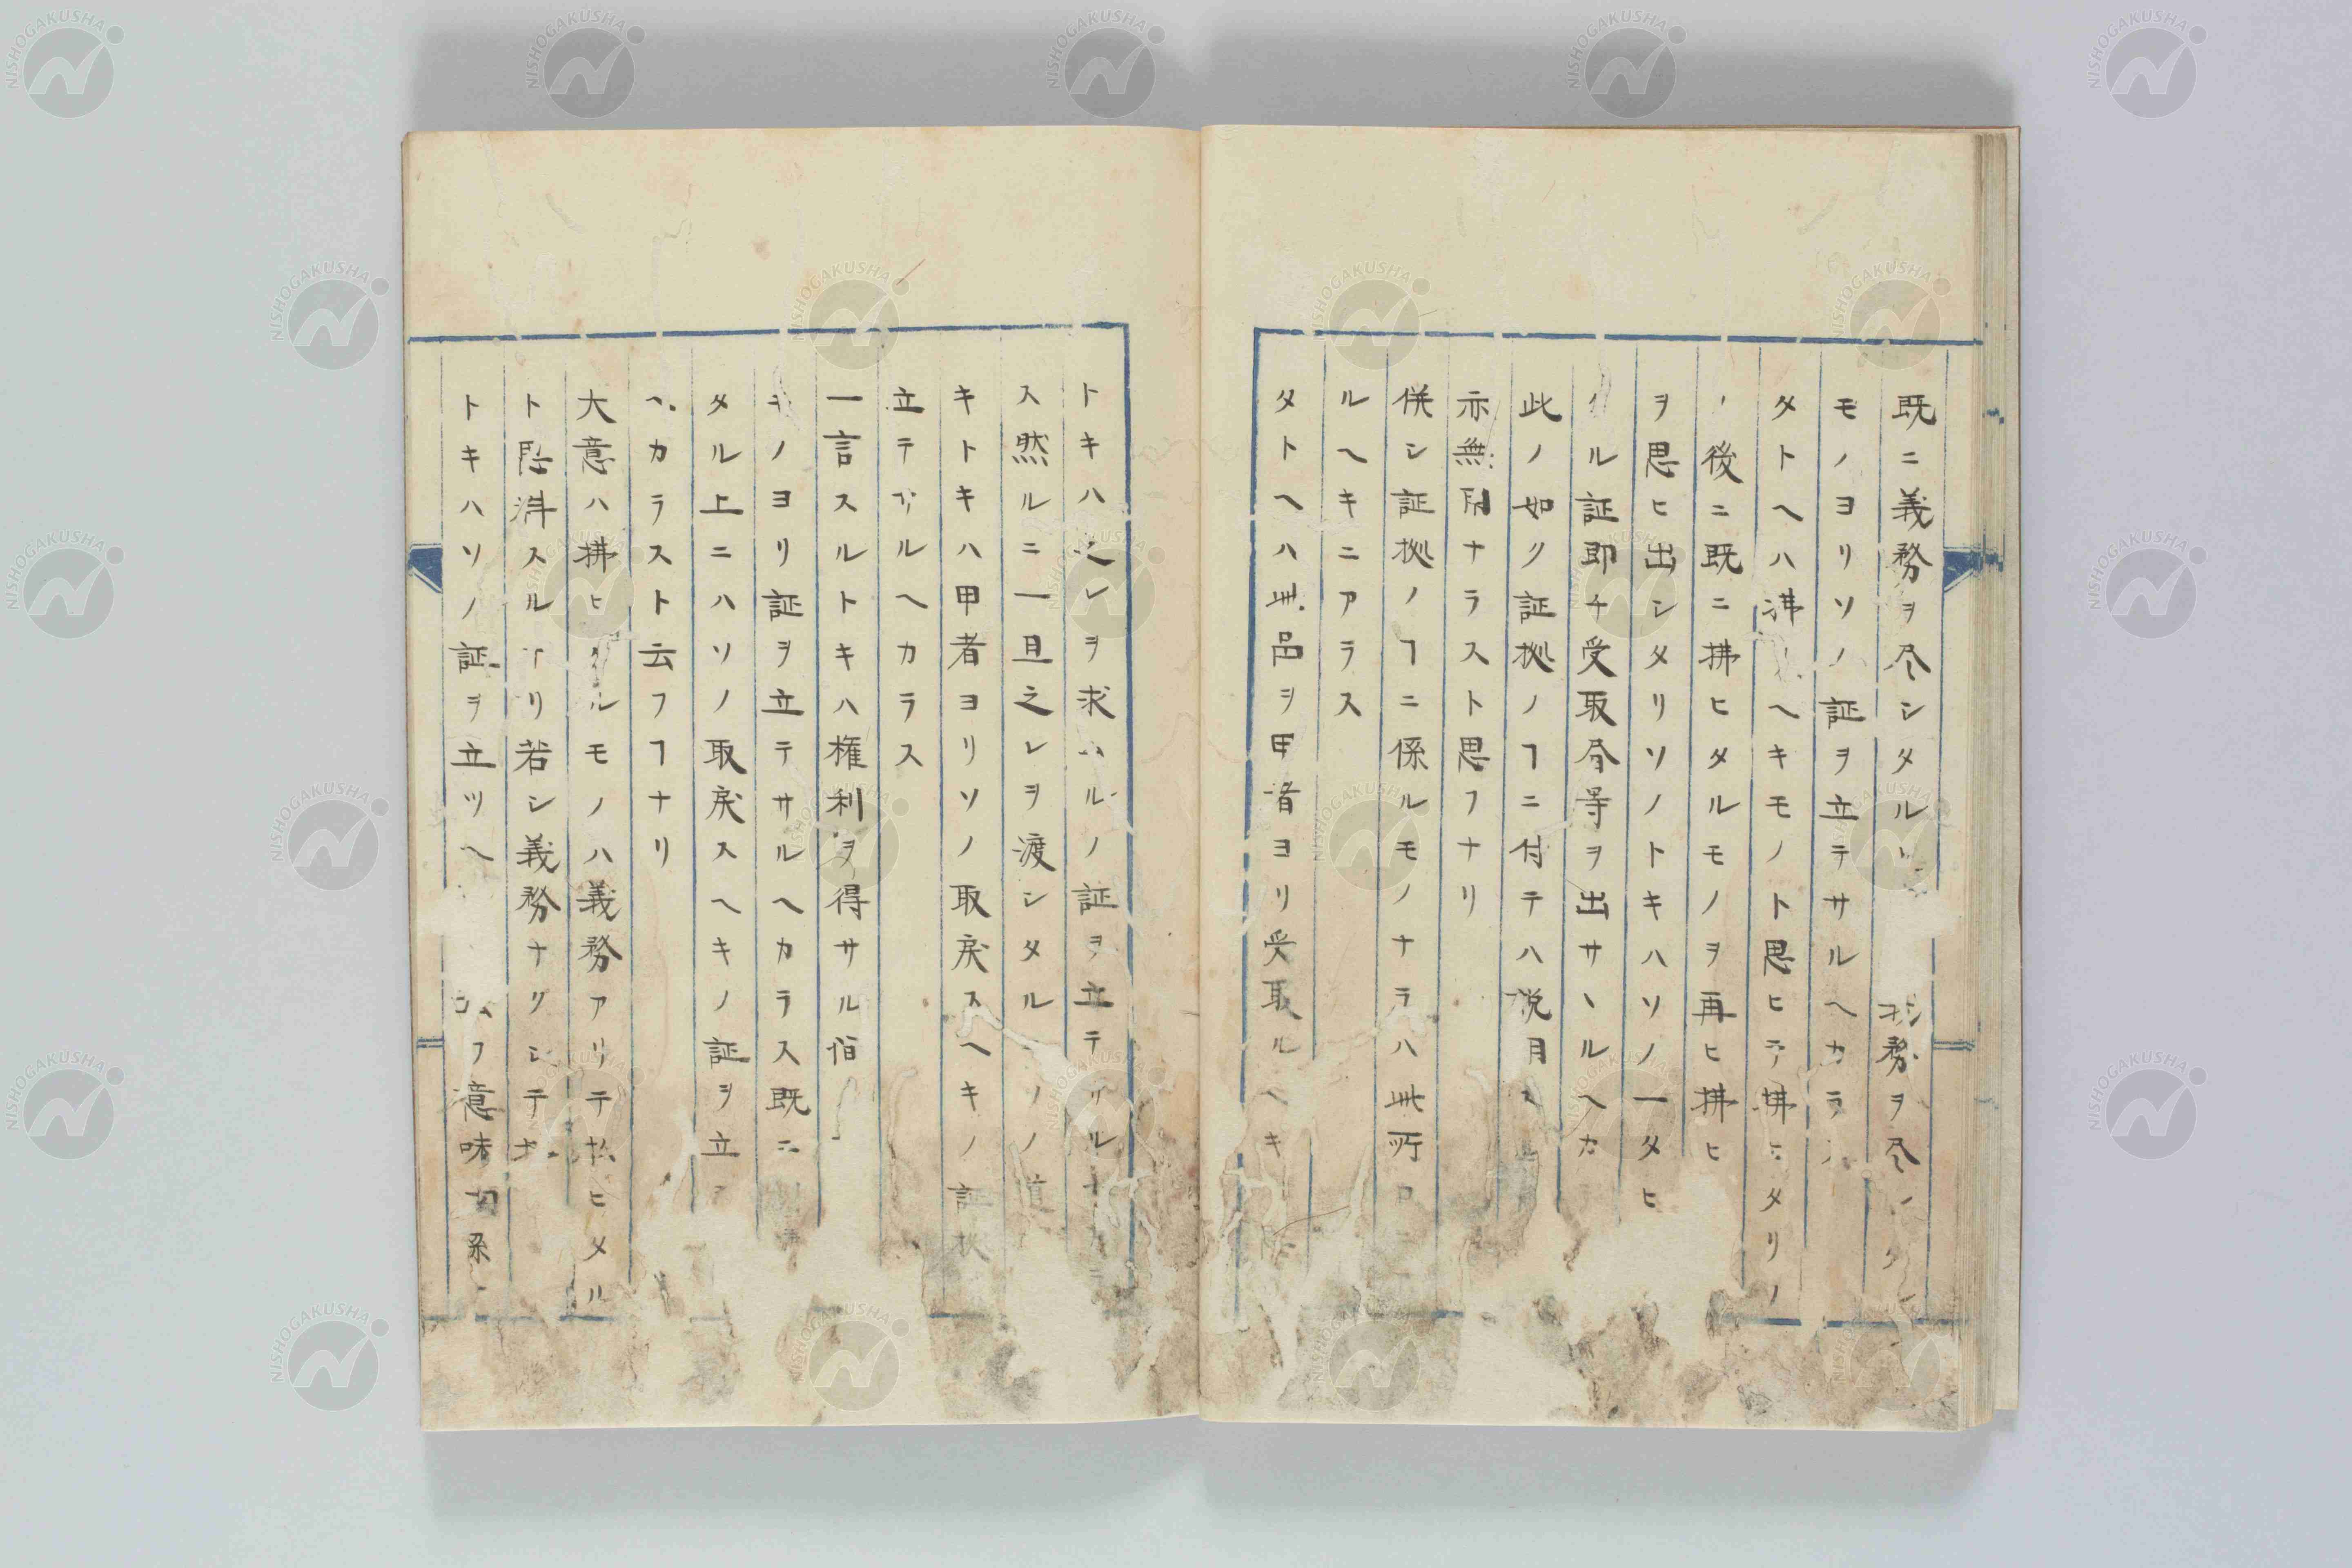 既ニ義務ヲ尽シタル 務ヲ尽
モノヨリソノ証ヲ立テサルヘカラ
タトヘハ拂 ヘキモノト思ヒテ拂ヒタリノ
後ニ既ニ拂ヒタルモノヲ再ヒ拂ヒ
ヲ思ヒ出シタリソノトキハソノ一タヒ
ル証即チ受取昏等ヲ出サヽルヘカ
此ノ如ク証拠ノヿニ付テハ説
亦無 ナラスト思フナリ
併シ証拠ノヿニ係ルモノナラハ此所
ルヘキニアラス
タトヘハ此品ヲ甲者ヨリ受取ルヘキ
トキハ之レヲ求ムルノ証ヲ立テ ル
ス然ルニ一旦之レヲ渡シタル ソノ
キトキハ甲者ヨリソノ取戻スヘキノ証
立テサルヘカラス
一言スルトキハ権利ヲ得サル
モノヨリ証ヲ立テサルヘカラス既ニ
タル上ニハソノ取戻スヘキノ証ヲ立
ヘカラスト云フヿナリ
大意ハ拂ヒタルモノハ義務アリテ払ヒタル
ト スルヿリ若シ義務ナクシテ
トキハソノ証ヲ立ツヘ フ意味
NISHOGAKUSHA